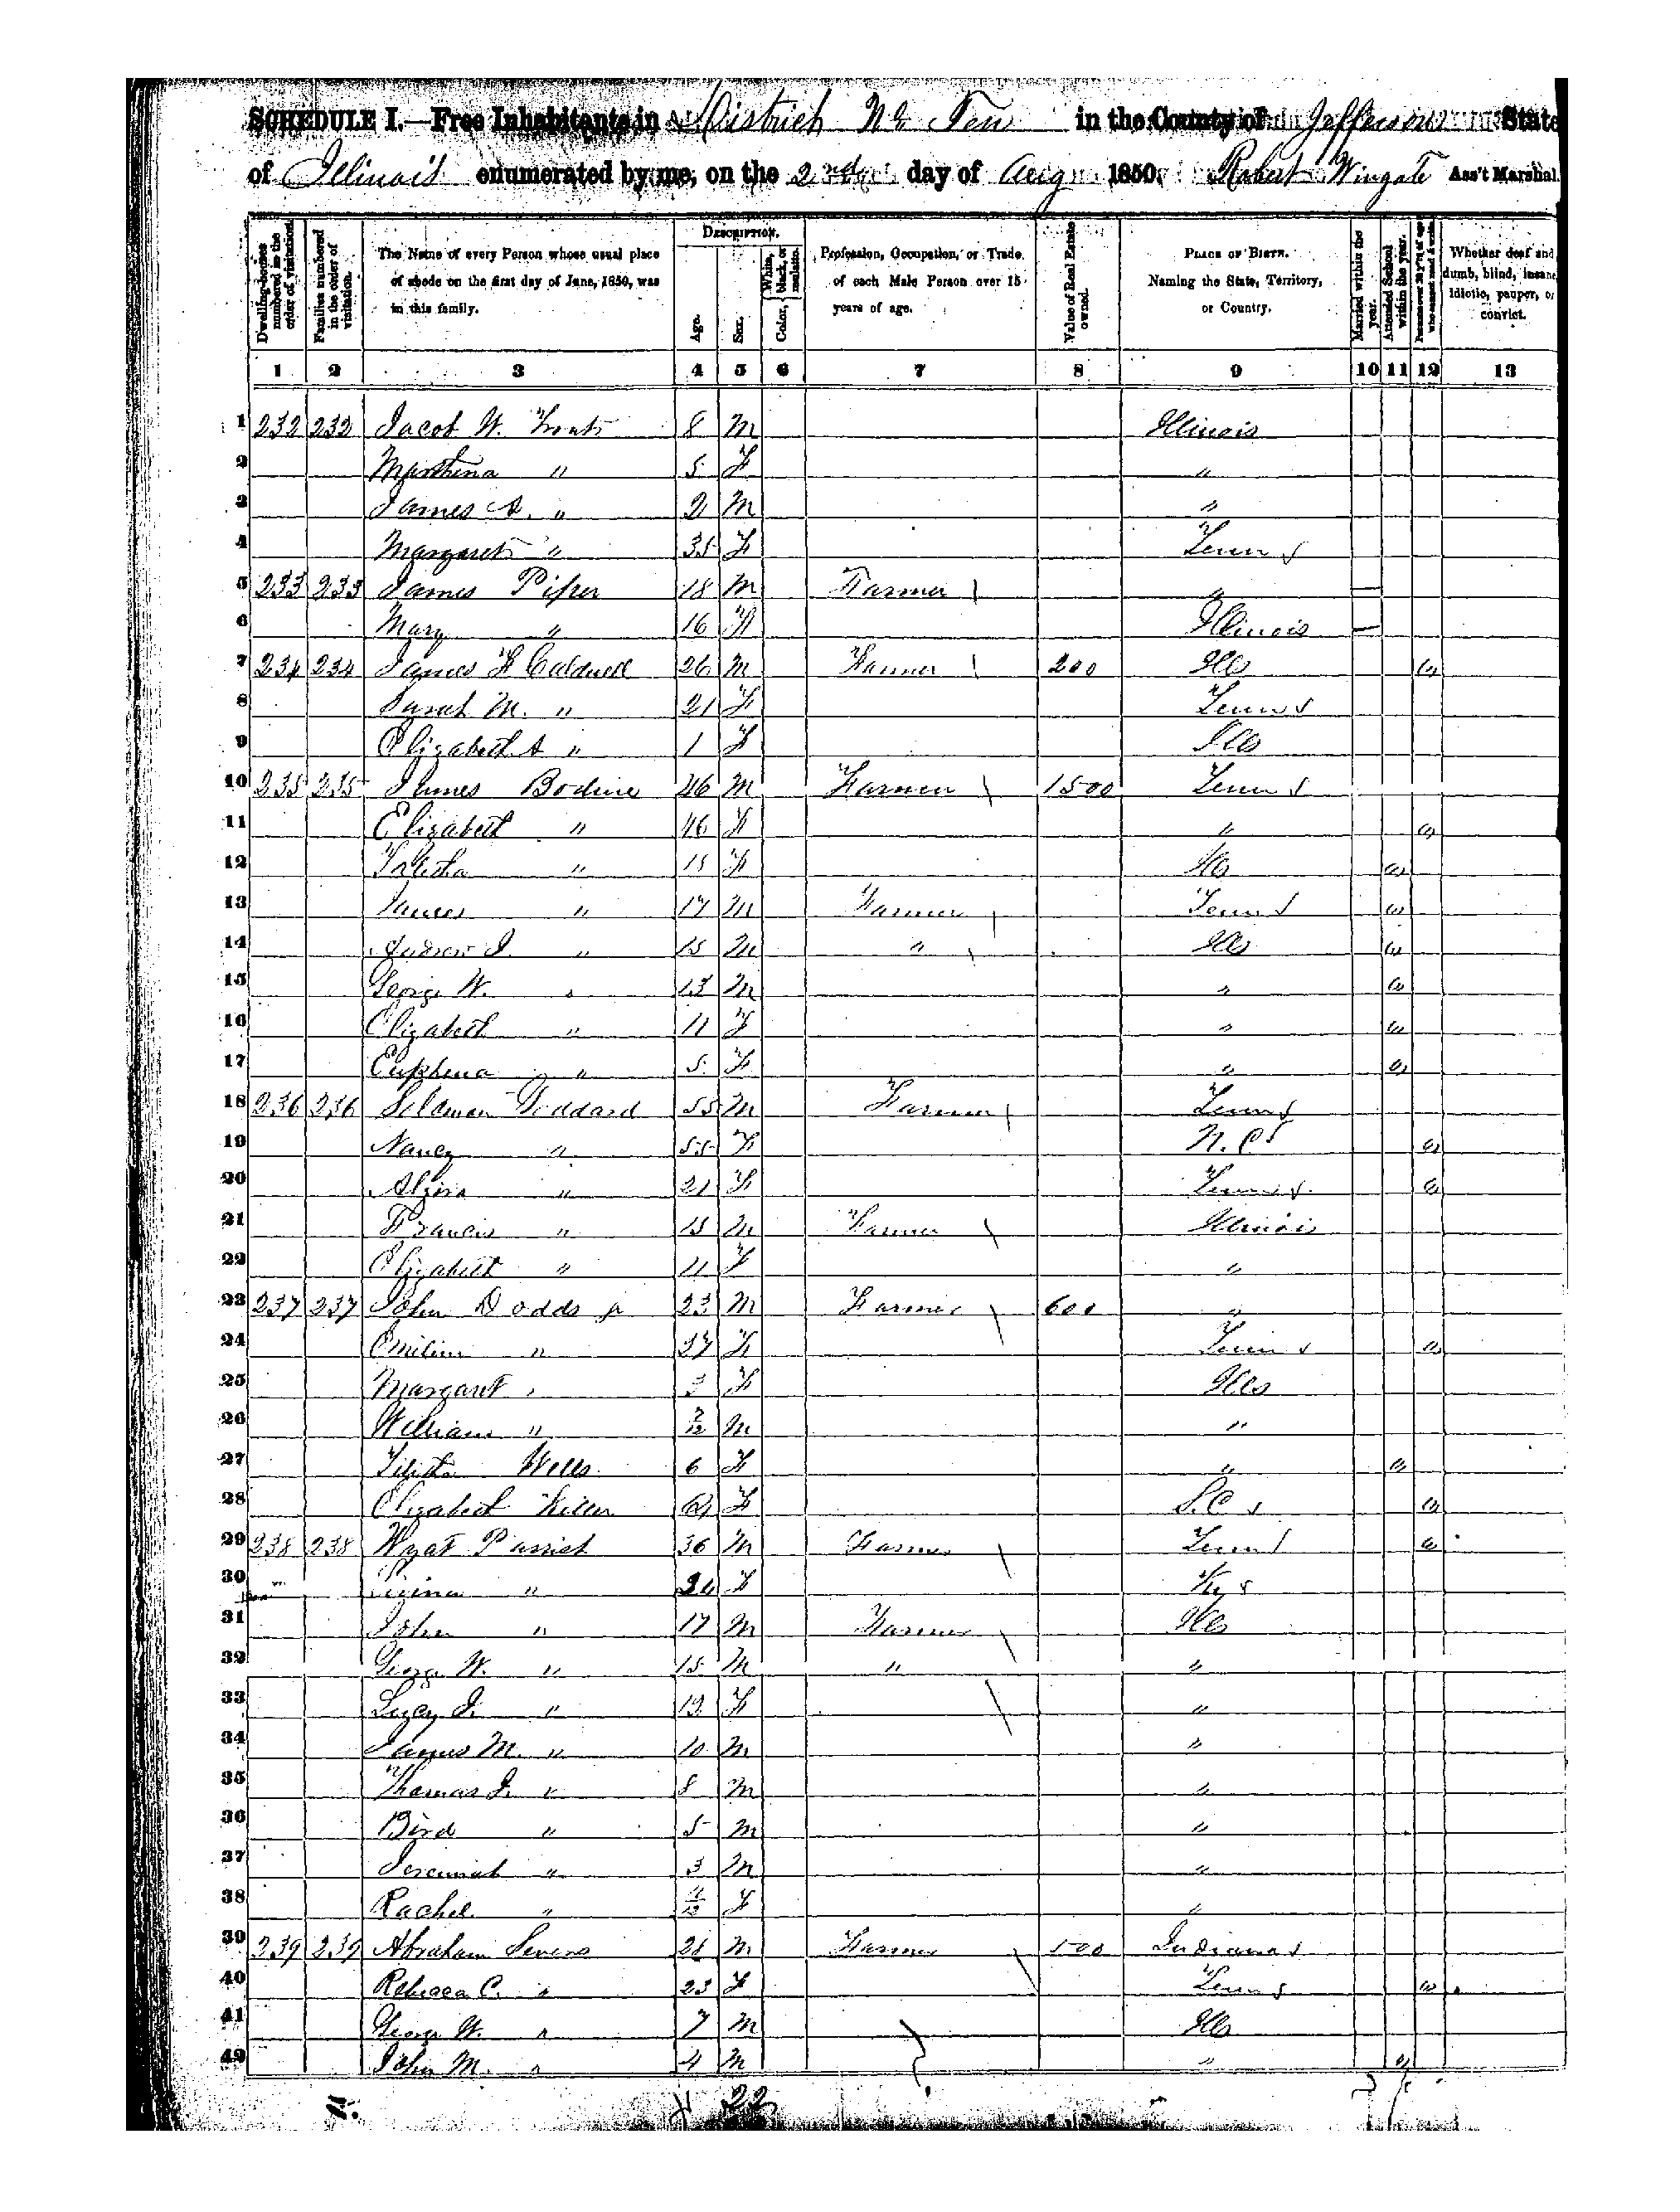 SCHEDULE I.—Free Inhabitants in District No Ten in the County of Jefferson State
of Illinois enumerated by me, on the 23d day of Aug 1850. Robert Wingate Ass't Marshal.
Dwelling-houses numbered in the order of visitation.
Families numbered in the order of visitation.
The Name of every Person whose usual place of abode on the first day of June, 1850, was in this family.
DESCRIPTION.
Age.
Sex.
Color, White, black, or mulatto.
Profession, Occupation, or Trade of each Male Person over 15 years of age.
Value of Real Estate owned.
PLACE OF BIRTH. Naming the State, Territory, or Country.
Married within the year.
Attended School within the year.
Persons over 20 y'rs of age who cannot read & write.
Whether deaf and dumb, blind, insane, idiotic, pauper, or convict.
1 2 3 4 5 6 7 8 9 10 11 12 13
1 232 232 Jacob W. 8 M Illinois
2 " 5 F "
3 James A. " 2 M "
4 Margaret " 35 F Tenn
5 233 233 James Piper 18 M Farmer "
6 Mary " 16 F Illinois
7 234 234 James F Caldwell 26 M Farmer 200 Ills
8 Sarah M. " 21 F Tenn
9 Elizabeth A " 1 F Ills
10 235 235 James Bodine 46 M Farmer 1500 Tenn
11 Elizabeth " 46 F "
12 Talitha " 18 F Ills
13 James " 17 M Farmer Tenn
14 Andrew J. " 15 M " Ills
15 George W. " 13 M "
16 Elizabeth " 11 F "
17 Euphena " 5 F "
18 236 236 Soloman Goddard 55 M Farmer Tenn
19 Nancy " 55 F N.C
20 " 21 F Tenn
21 Francis " 15 M Farmer Illinois
22 Elizabeth " 11 F "
23 237 237 John Dodds jr 23 M Farmer 600 "
24 Emiline " 27 F Tenn
25 Margaret " 3 F Ills
26 William " 7/12 M "
27 Wells 6 F "
28 Elizabeth 62 F S.C
29 238 238 Wyat Parrish 36 M Farmer Tenn
30 " F Ky
31 John " 17 M Farmer Ills
32 George W. " 15 M " "
33 J. " 13 F "
34 James M. " 10 M "
35 Thomas J. " 8 M "
36 Bird " 5 M "
37 Jeremiah " 3 M "
38 Rachel " F "
39 239 239 Abraham Severs 28 M Farmer 500 Indiana
40 Rebecca C. " 23 F Tenn
41 George W. " 7 M Ills
42 John M. " 4 M "
22